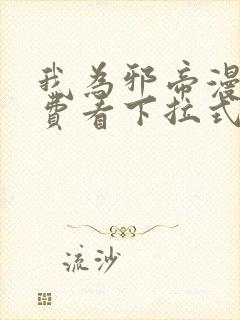 我為邪帝漫
費看下拉式
流沙